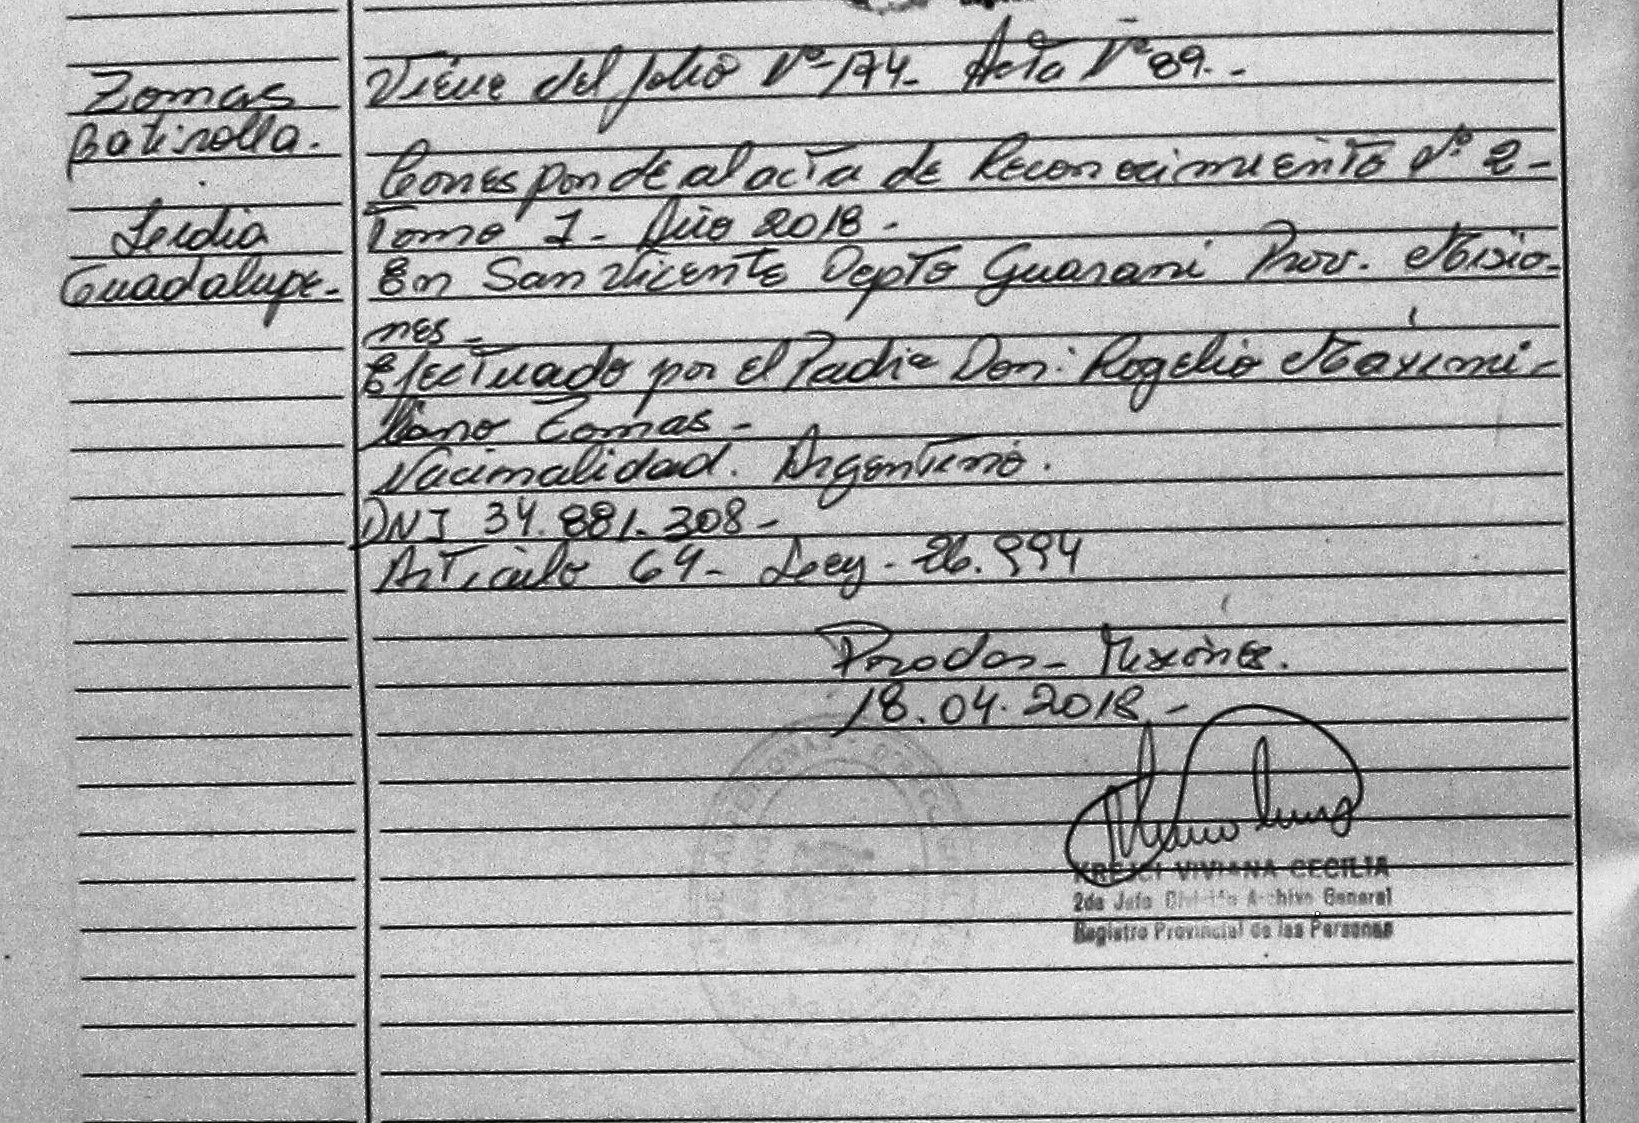 Zomas
Batirolla.
Leidia
Guadalupe.
Viene del folio Nº 174. Acta Nº 89.-
Corresponde al acta de Reconocimiento Nº 2-
Tomo 1- Año 2018.
En San Vicente Depto Guarani Prov. Misio-
nes-
Efectuado por el Padre Don: Rogelio Maximi-
liano Zomas-
Nacionalidad. Argentino.
DNI 34.881.308-
Articulo 64- Ley- 26.994
Posadas- Misiones.
18.04.2018-
KREJCI VIVIANA CECILIA
2da Jefa División Archivo General
Registro Provincial de las Personas